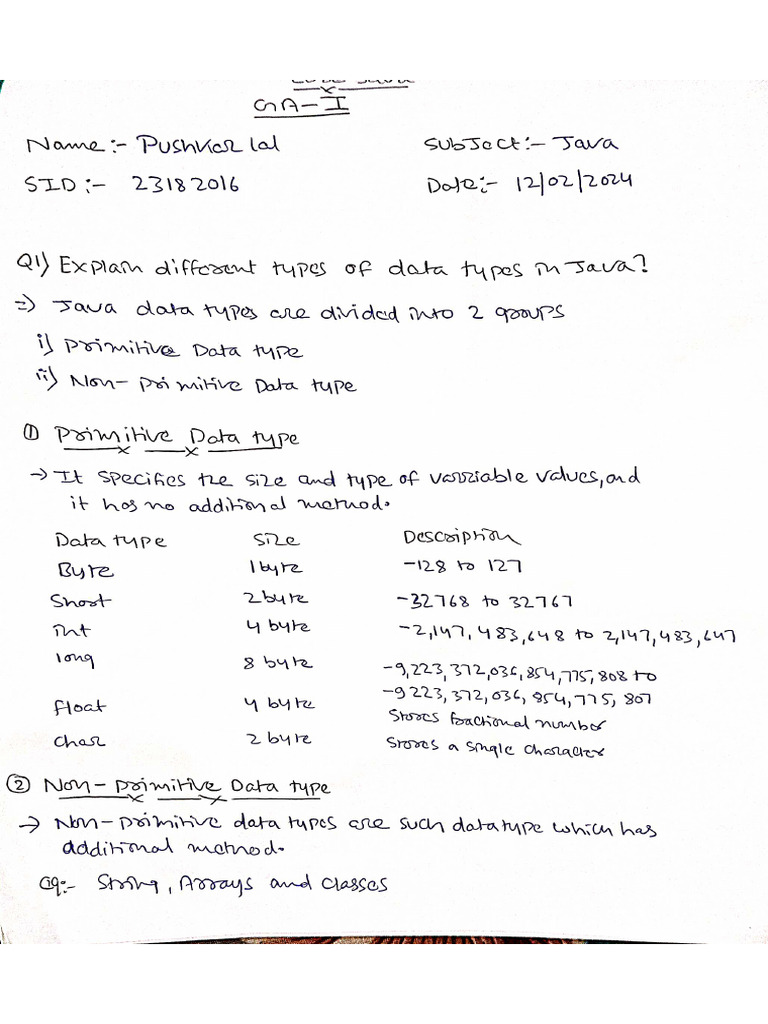 GA-I
Name:- Pushkar lal Subject:- Java
SID:- 23182016 Date:- 12/02/2024
Q1) Explain different types of data types in Java?
=> Java data types are divided into 2 groups
i) Primitive Data type
ii) Non-primitive Data type
① Primitive Data type
→ It specifies the size and type of varriable values, and
it has no additional method.
Data type Size Description
Byte 1 byte -128 to 127
Short 2 byte -32768 to 32767
int 4 byte -2,147,483,648 to 2,147,483,647
long 8 byte -9,223,372,036,854,775,808 to
-9223,372,036,854,775,807
float 4 byte Stores fractional number
char 2 byte Stores a single character
② Non-primitive Data type
→ Non-primitive data types are such datatype which has
additional method.
eg:- String, Arrays and classes